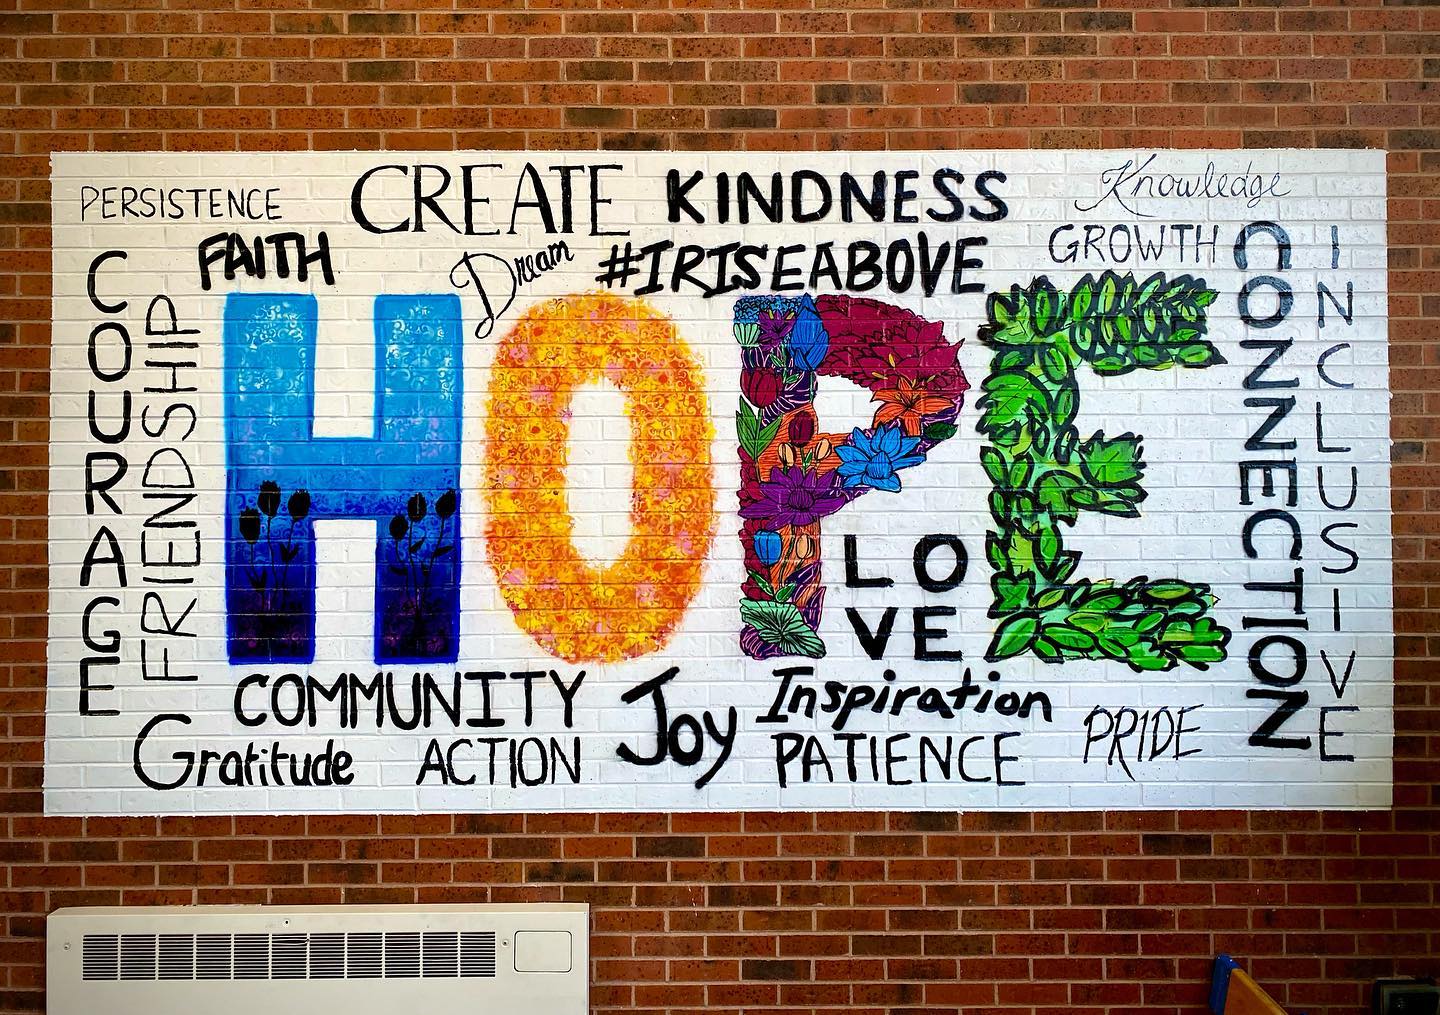 PERSISTENCE
CREATE
KINDNESS
Knowledge
FAITH
Dream
#IRISEABOVE
GROWTH
COURAGE
FRIENDSHIP
HOPE
LO
VE
CONNECTION
INCLUSIVE
COMMUNITY
Joy
Inspiration
Gratitude
ACTION
PATIENCE
PRIDE